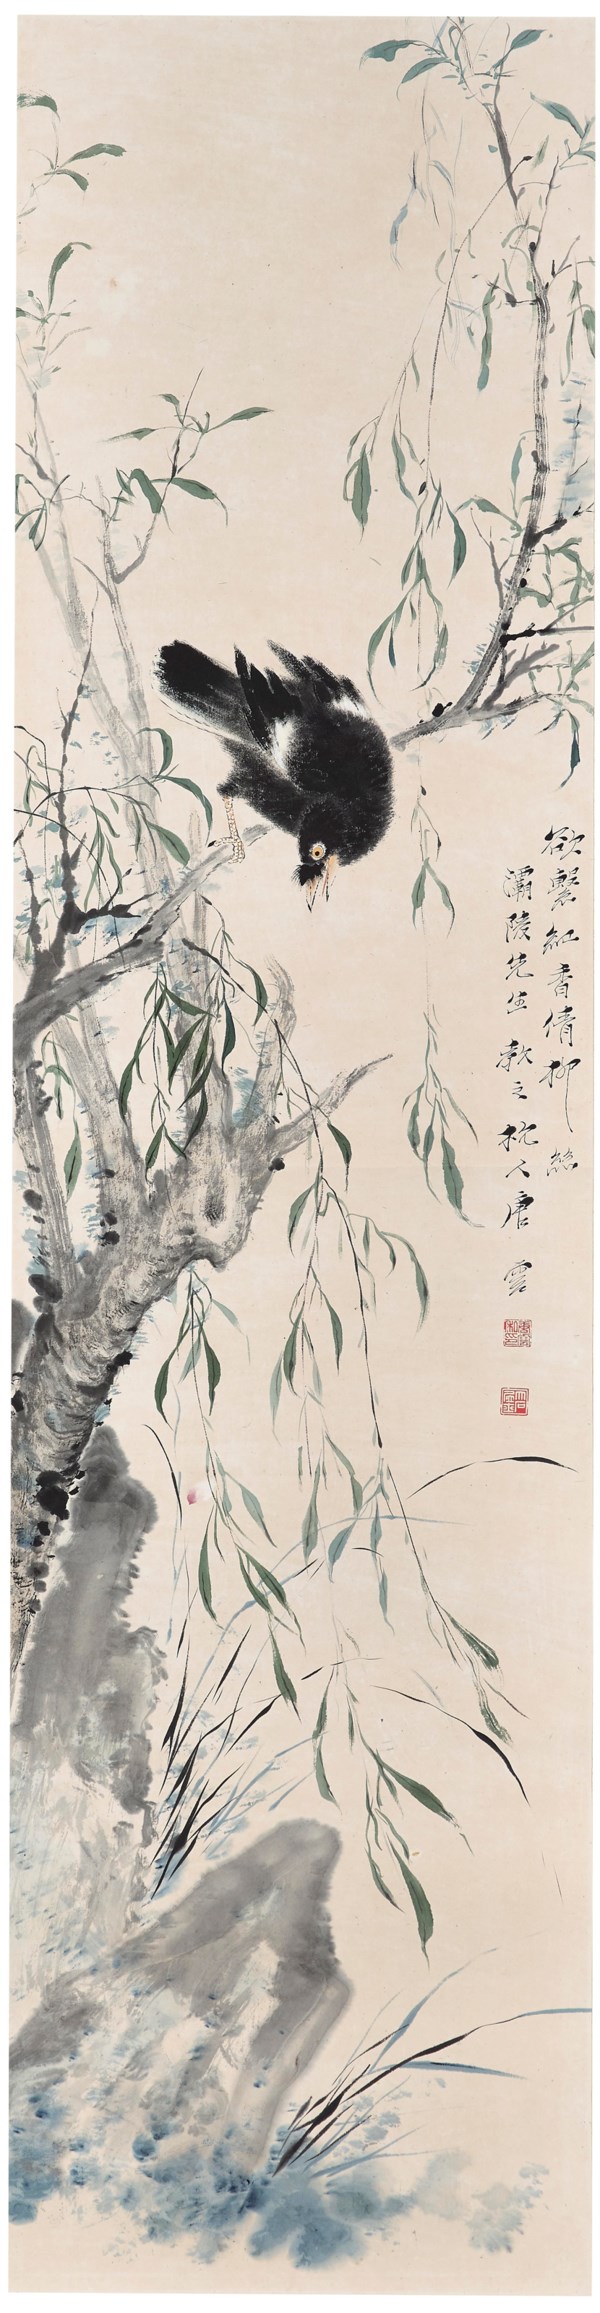 欲繫紅香倩柳絲
灞陵先生教之杭人唐雲